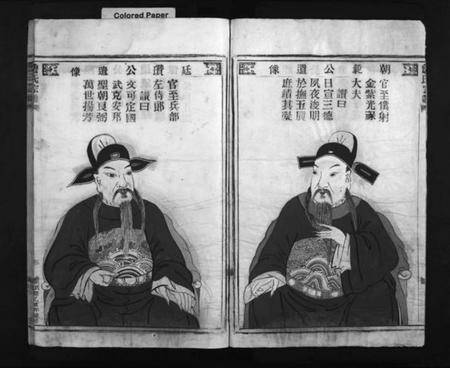 Colored Paper
朝載公遺像
官至僕射
金紫光祿
大夫
讚曰
日宣三德
夙夜浚明
於撫五辰
庶績其凝
廷讚公遺像
官至兵部
左侍郎
讚曰
文可定國
武克安邦
聖朝良弼
萬世揚芳